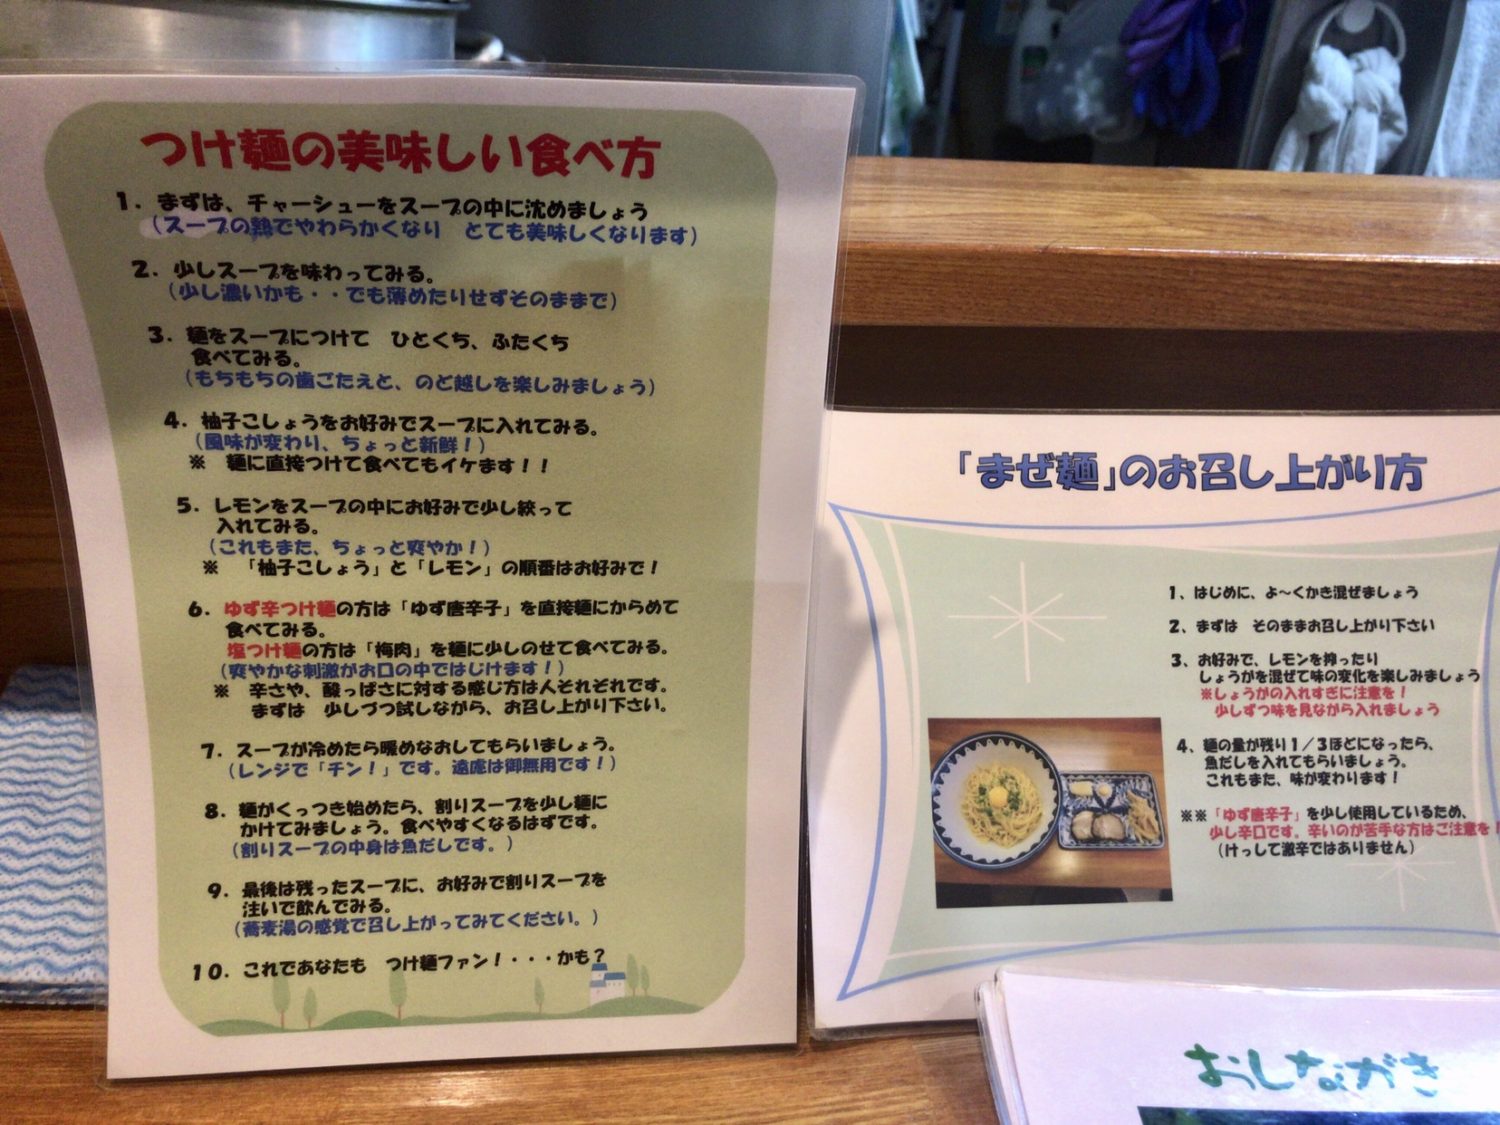 つけ麺の美味しい食べ方
1．まずは、チャーシューをスープの中に沈めましょう
（スープの熱でやわらかくなり　とても美味しくなります）
2．少しスープを味わってみる。
（少し濃いかも・・でも薄めたりせずそのままで）
3．麺をスープにつけて　ひとくち、ふたくち
食べてみる。
（もちもちの歯ごたえと、のど越しを楽しみましょう）
4．柚子こしょうをお好みでスープに入れてみる。
（風味が変わり、ちょっと新鮮！）
※　麺に直接つけて食べてもイケます！！
5．レモンをスープの中にお好みで少し絞って
入れてみる。
（これもまた、ちょっと爽やか！）
※　「柚子こしょう」と「レモン」の順番はお好みで！
6．ゆず辛つけ麺の方は「ゆず唐辛子」を直接麺にからめて
食べてみる。
塩つけ麺の方は「梅肉」を麺に少しのせて食べてみる。
（爽やかな刺激がお口の中ではじけます！）
※　辛さや、酸っぱさに対する感じ方は人それぞれです。
まずは　少しづつ試しながら、お召し上がり下さい。
7．スープが冷めたら暖めなおしてもらいましょう。
（レンジで「チン！」です。遠慮は御無用です！）
8．麺がくっつき始めたら、割りスープを少し麺に
かけてみましょう。食べやすくなるはずです。
（割りスープの中身は魚だしです。）
9．最後は残ったスープに、お好みで割りスープを
注いで飲んでみる。
（蕎麦湯の感覚で召し上がってみてください。）
10．これであなたも　つけ麺ファン！・・・かも？
「まぜ麺」のお召し上がり方
1、はじめに、よ～くかき混ぜましょう
2、まずは　そのままお召し上がり下さい
3、お好みで、レモンを搾ったり
しょうがを混ぜて味の変化を楽しみましょう
※しょうがの入れすぎに注意を！
少しずつ味を見ながら入れましょう
4、麺の量が残り１／３ほどになったら、
魚だしを入れてもらいましょう。
これもまた、味が変わります！
※※「ゆず唐辛子」を少し使用しているため、
少し辛口です。辛いのが苦手な方はご注意を！
（けっして激辛ではありません）
おしながき